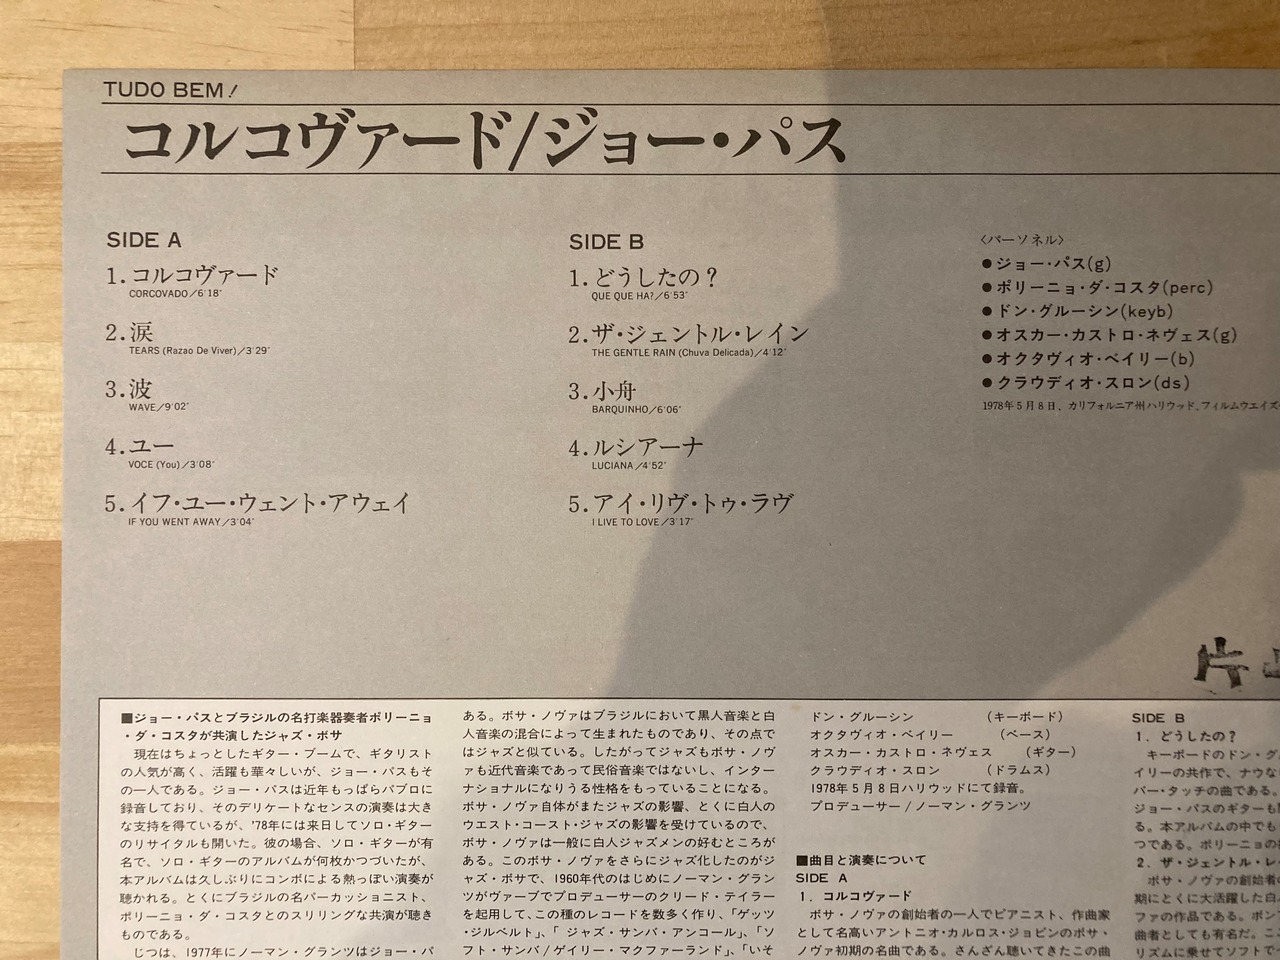 TUDO BEM!
コルコヴァード/ジョー・パス
SIDE A
1.コルコヴァード
CORCOVADO/6'18"
2.涙
TEARS (Razao De Viver)/3'29"
3.波
WAVE/9'02"
4.ユー
VOCE (You)/3'08"
5.イフ・ユー・ウェント・アウェイ
IF YOU WENT AWAY/3'04"
SIDE B
1.どうしたの?
QUE QUE HA?/6'53"
2.ザ・ジェントル・レイン
THE GENTLE RAIN (Chuva Delicada)/4'12"
3.小舟
BARQUINHO/6'06"
4.ルシアーナ
LUCIANA/4'52"
5.アイ・リヴ・トゥ・ラヴ
I LIVE TO LOVE/3'17"
〈パーソネル〉
●ジョー・パス(g)
●ポリーニョ・ダ・コスタ(perc)
●ドン・グルーシン(keyb)
●オスカー・カストロ・ネヴェス(g)
●オクタヴィオ・ベイリー(b)
●クラウディオ・スロン(ds)
1978年5月8日、カリフォルニア州ハリウッド、フィルムウエイズ
片
■ジョー・パスとブラジルの名打楽器奏者ポリーニョ
・ダ・コスタが共演したジャズ・ボサ
現在はちょっとしたギター・ブームで、ギタリスト
の人気が高く、活躍も華々しいが、ジョー・パスもそ
の一人である。ジョー・パスは近年もっぱらパブロに
録音しており、そのデリケートなセンスの演奏は大き
な支持を得ているが、'78年には来日してソロ・ギター
のリサイタルも開いた。彼の場合、ソロ・ギターが有
名で、ソロ・ギターのアルバムが何枚かつづいたが、
本アルバムは久しぶりにコンボによる熱っぽい演奏が
聴かれる。とくにブラジルの名パーカッショニスト、
ポリーニョ・ダ・コスタとのスリリングな共演が聴き
ものである。
じつは、1977年にノーマン・グランツはジョー・パ
ある。ボサ・ノヴァはブラジルにおいて黒人音楽と白
人音楽の混合によって生まれたものであり、その点で
はジャズと似ている。したがってジャズもボサ・ノヴ
ァも近代音楽であって民俗音楽ではないし、インター
ナショナルになりうる性格をもっていることになる。
ボサ・ノヴァ自体がまたジャズの影響、とくに白人の
ウエスト・コースト・ジャズの影響を受けているので、
ボサ・ノヴァは一般に白人ジャズメンの好むところが
ある。このボサ・ノヴァをさらにジャズ化したのがジ
ャズ・ボサで、1960年代のはじめにノーマン・グラン
ツがヴァーブでプロデューサーのクリード・テイラー
を起用して、この種のレコードを数多く作り、「ゲッツ
・ジルベルト」、「ジャズ・サンバ・アンコール」、「ソ
フト・サンバ/ゲイリー・マクファーランド」、「いそ
ドン・グルーシン (キーボード)
オクタヴィオ・ベイリー (ベース)
オスカー・カストロ・ネヴェス (ギター)
クラウディオ・スロン (ドラムス)
1978年5月8日ハリウッドにて録音。
プロデューサー/ノーマン・グランツ
■曲目と演奏について
SIDE A
1. コルコヴァード
ボサ・ノヴァの創始者の一人でピアニスト、作曲家
として名高いアントニオ・カルロス・ジョビンのボサ・
ノヴァ初期の名曲である。さんざん聴いてきたこの曲
SIDE B
1. どうしたの?
キーボードのドン・グ
イリーの共作で、ナウな
バー・タッチの曲である。
ジョー・パスのギターも
る。本アルバムの中でも
つである。ポリーニョの
2. ザ・ジェントル・レ
ボサ・ノヴァの創始者
期にとくに大活躍した
ファの作品である。ボン
曲者としても有名だ。こ
リズムに乗せてソフトで